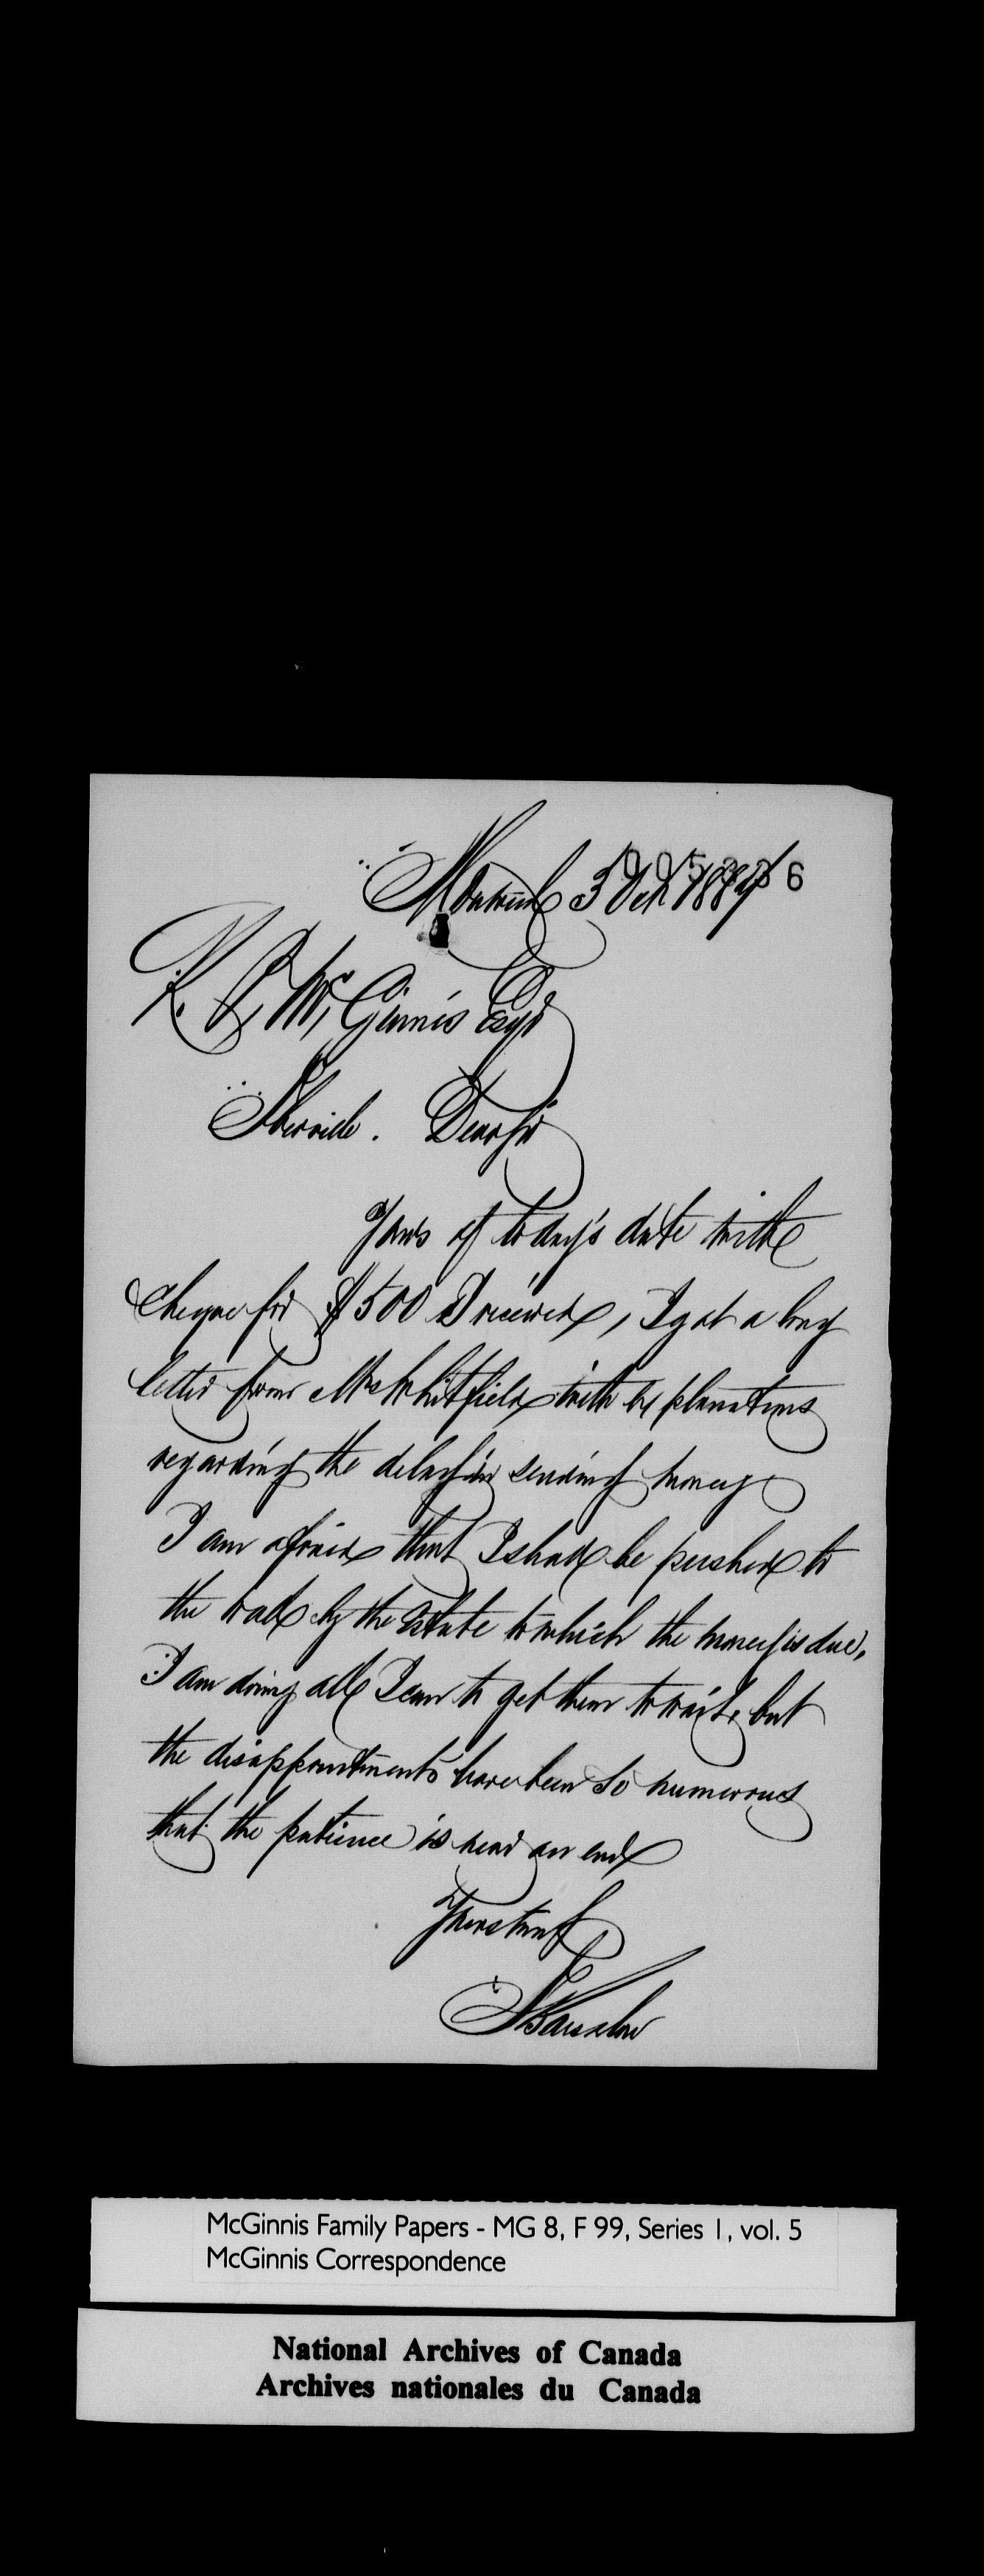 Montreal 3 Oct 1884
R. P. McGinnis Esqr
Iberville. Dear Sir
Yours of today's date with
Cheque for $500 I received, I got a long
letter from Mrs Whitfield with explanations
regarding the delay in sending money
I am afraid that I shall be pushed to
the wall by the Estate to which the money is due,
I am doing all I can to get them to wait, but
the disappointments have been so numerous
that the patience is near an end
Yours truly
McGinnis Family Papers - MG 8, F 99, Series 1, vol. 5
McGinnis Correspondence
National Archives of Canada
Archives nationales du Canada